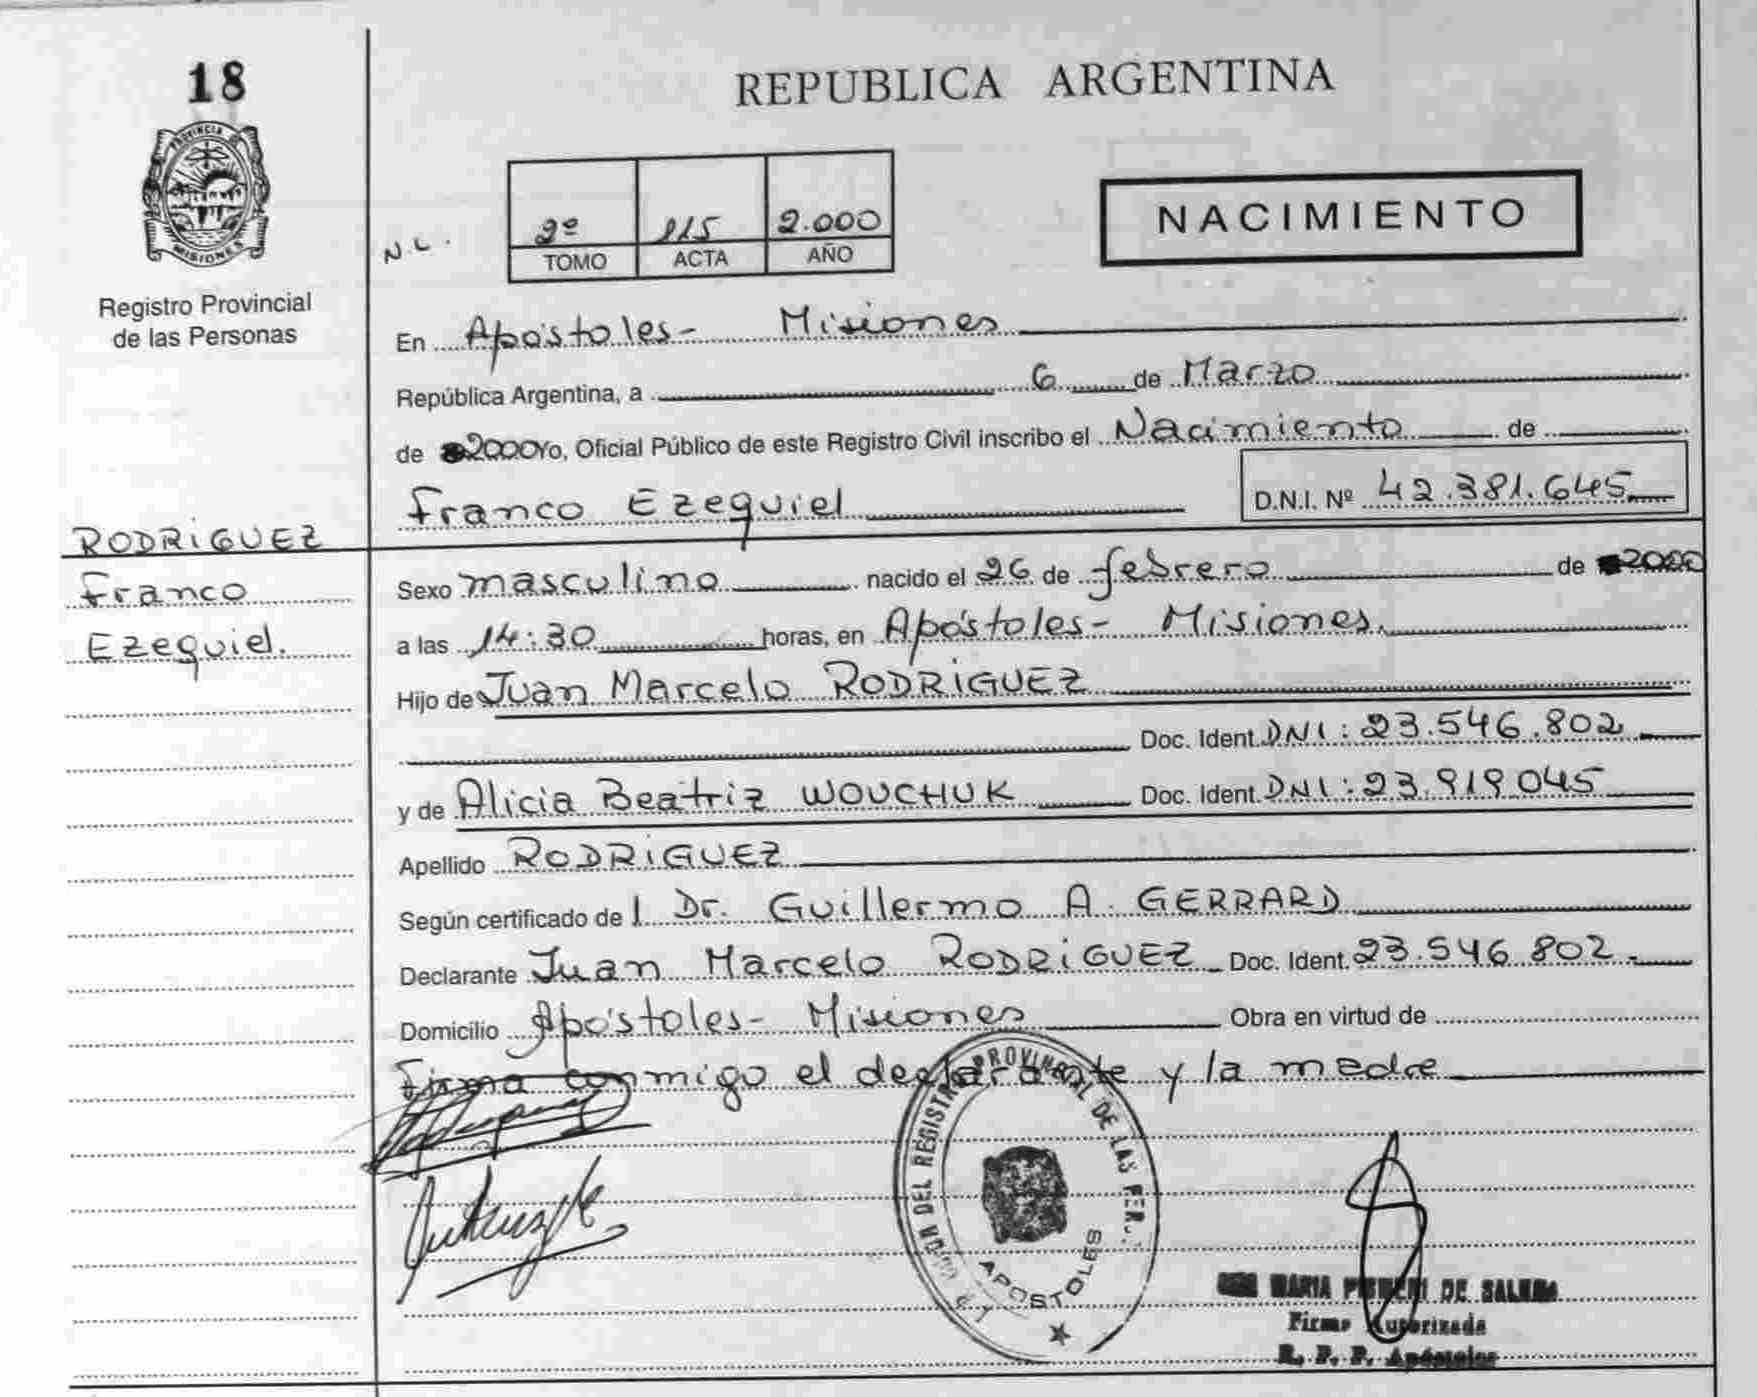 18
PROVINCIA DE
MISIONES
Registro Provincial
de las Personas
RODRIGUEZ
Franco
Ezequiel.
REPUBLICA ARGENTINA
N.L.
2º 115 2.000
TOMO ACTA AÑO
NACIMIENTO
En Apóstoles- Misiones
República Argentina, a 6 de Marzo
de 2000 Yo, Oficial Público de este Registro Civil inscribo el Nacimiento de
Franco Ezequiel D.N.I. Nº 42.381.645
Sexo masculino nacido el 26 de febrero de 2000
a las 14:30 horas, en Apóstoles- Misiones.
Hijo de Juan Marcelo RODRIGUEZ
Doc. Ident. DNI: 23.546.802
y de Alicia Beatriz WOUCHUK Doc. Ident. DNI: 23.919.045
Apellido RODRIGUEZ
Según certificado de l Dr. Guillermo A. GERRARD
Declarante Juan Marcelo RODRIGUEZ Doc. Ident. 23.546.802.-
Domicilio Apóstoles- Misiones Obra en virtud de
Firma conmigo el declarante y la madre
DEL REGISTRO PROVINCIAL DE LAS PER.
APOSTOLES
MARIA DE
Firma Autorizada
R. P. P. Apóstoles